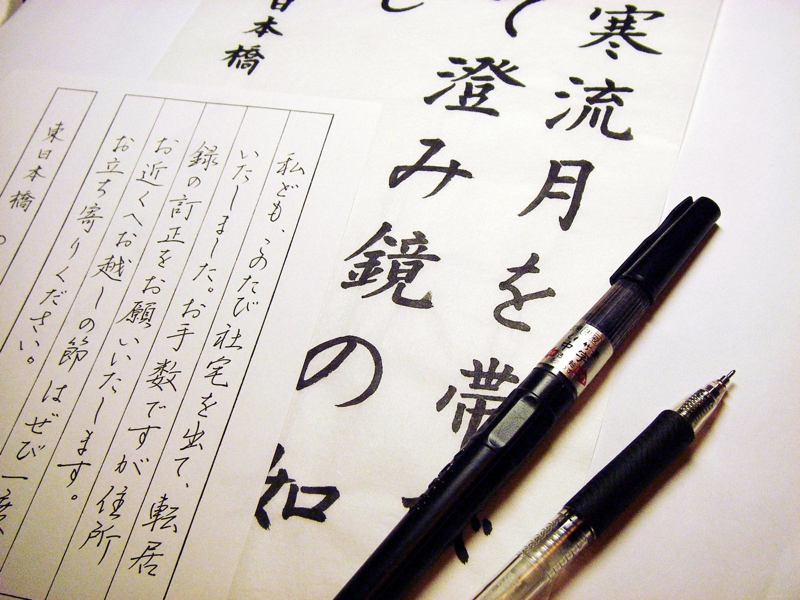 寒流月を帯
て澄み鏡の如
し
日本橋
私ども、このたび社宅を出て、転居
いたしました。お手数ですが住所
録の訂正をお願いいたします。
お近くへお越しの節はぜひ一度
お立ち寄りください。
東日本橋